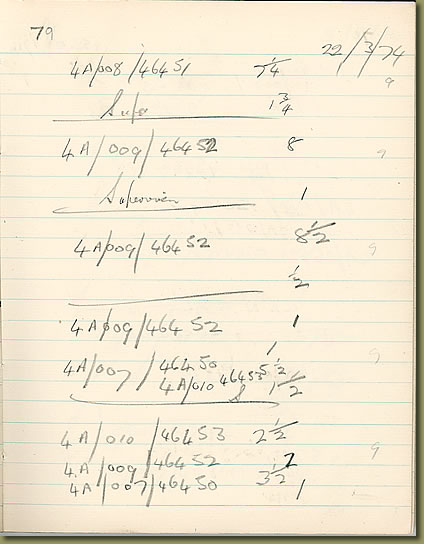 79
22/3/74
4A/008/46451 7¼
9
Super 1¾
4A/009/46452 8
9
Supervision 1
4A/009/46452 8½
9
½
4A/009/46452 1
4A/007/46450 5½
9
4A/010 46453 1½
S
4A/010/46453 2½
4A/009/46452 2
9
4A/007/46450 3½ 1